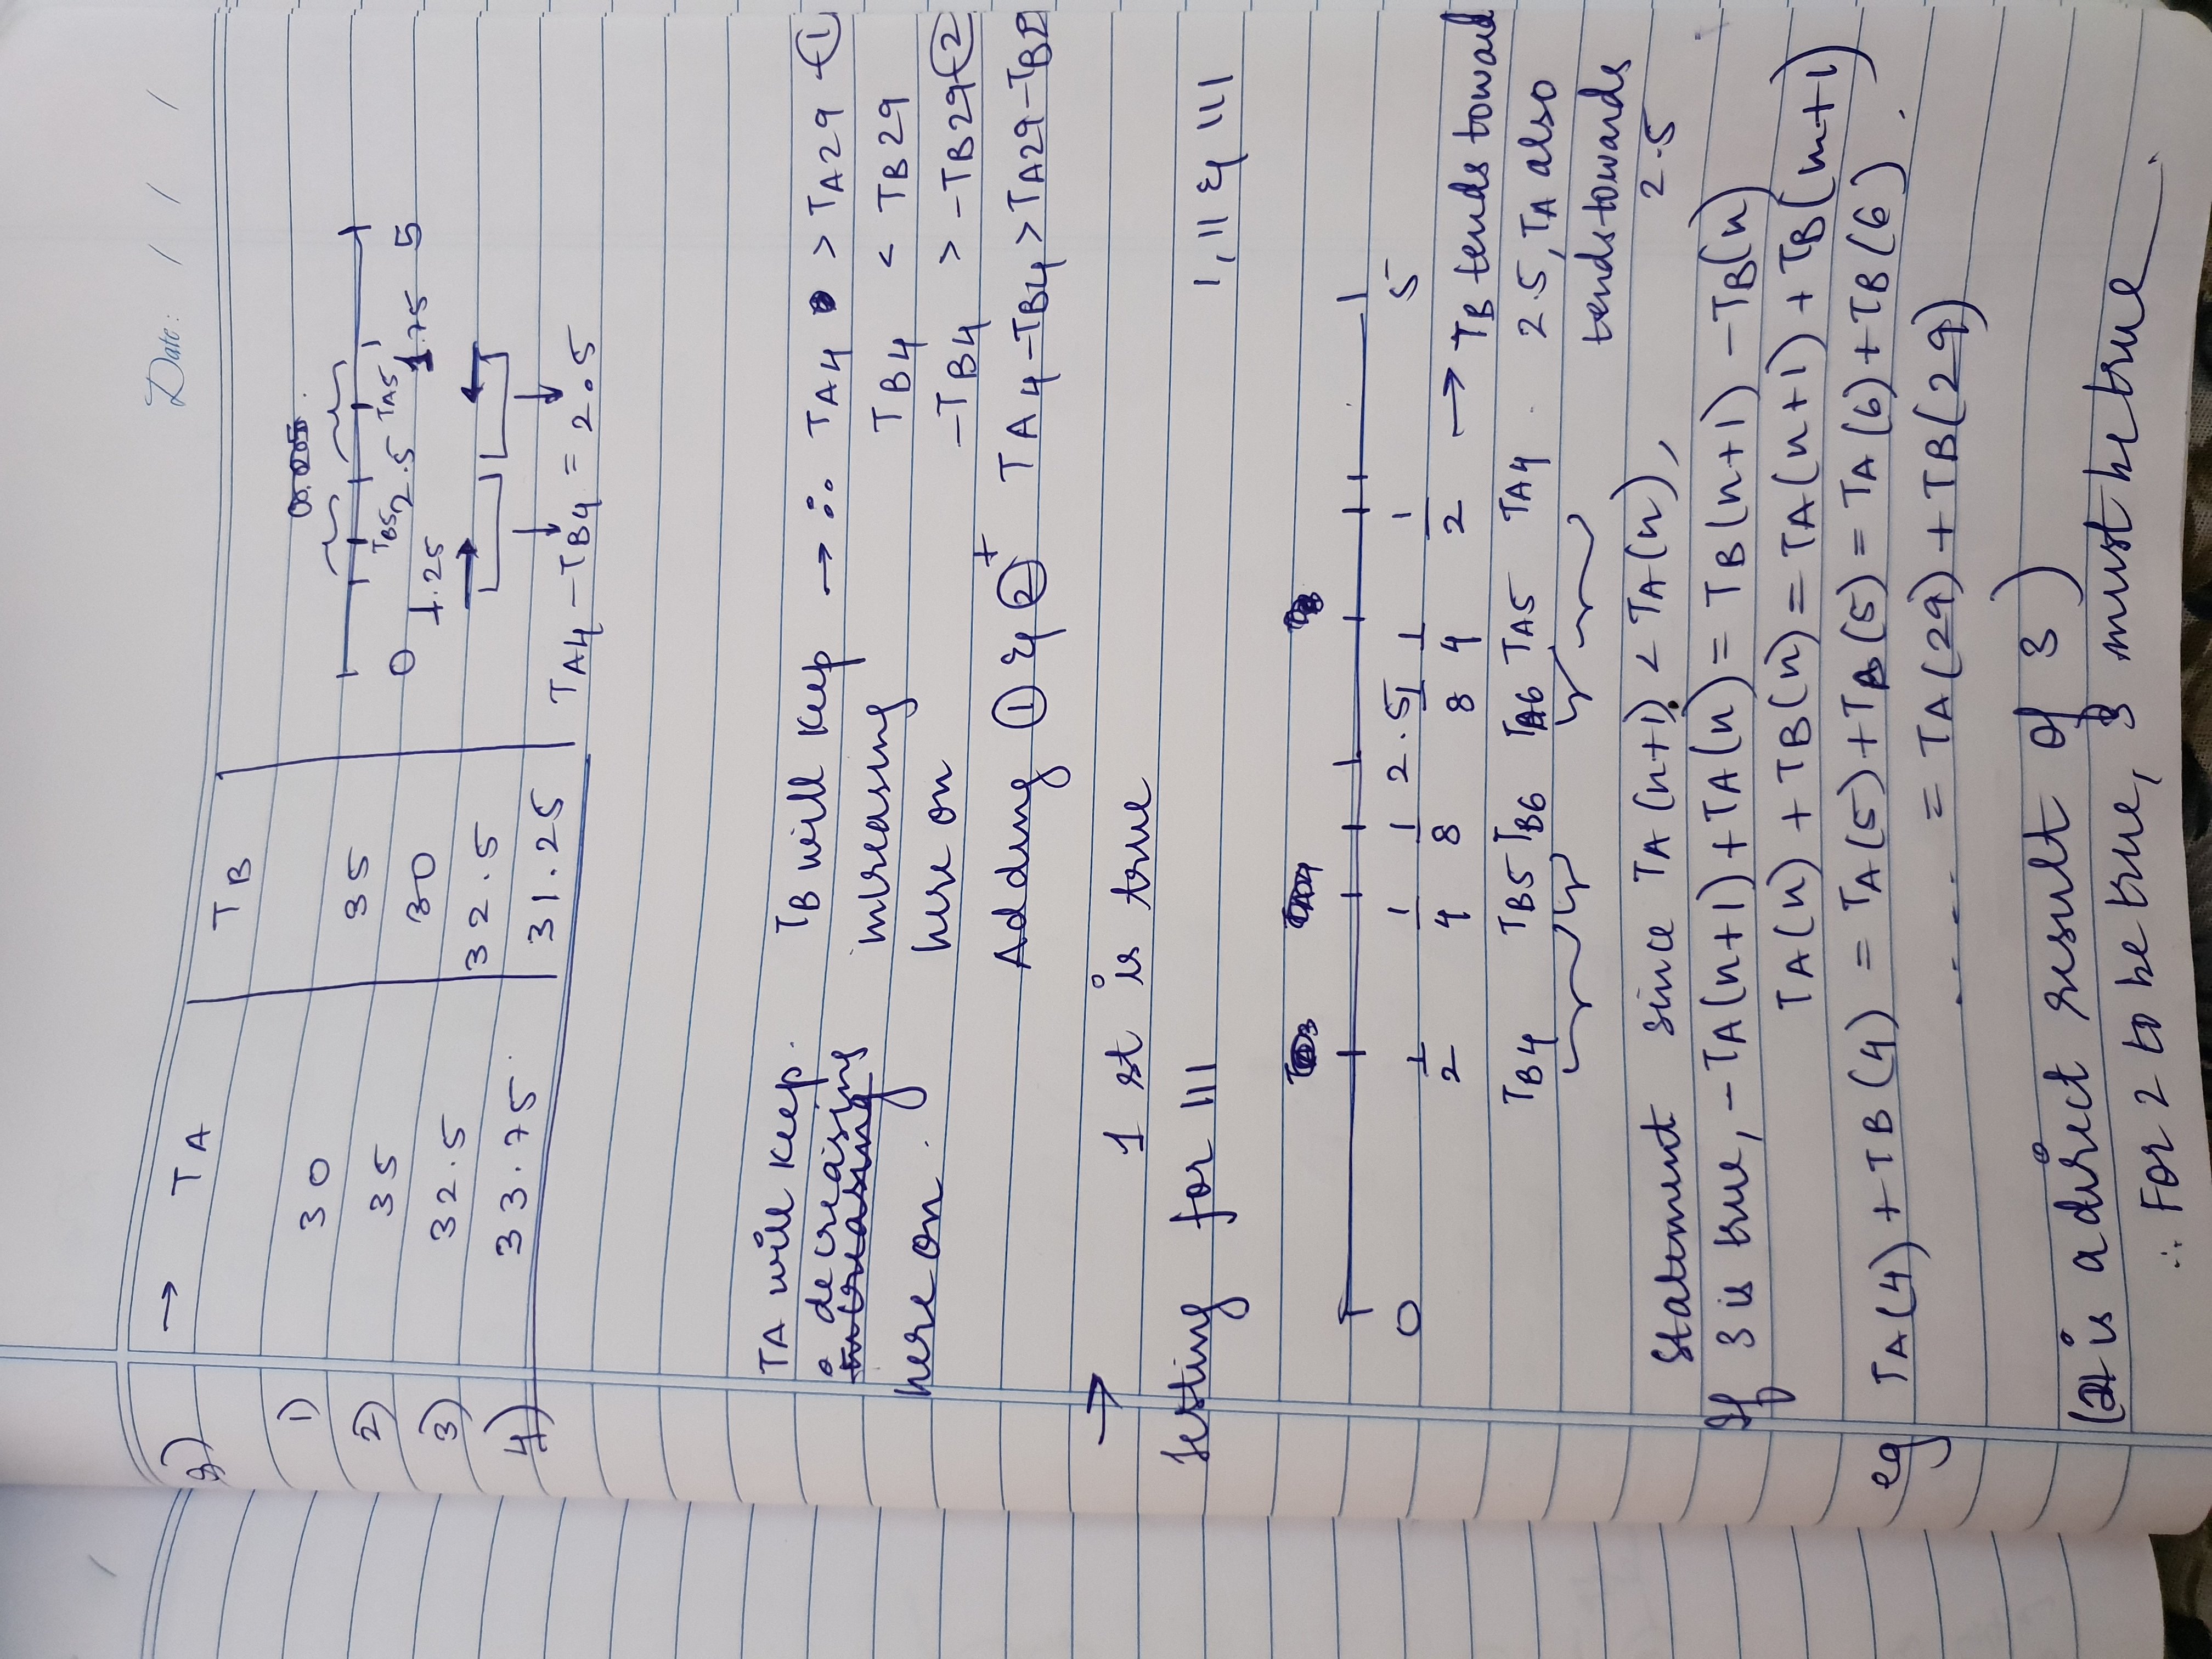 Date: / / /
9) → TA TB
1) 30 35
2) 35 30
3) 32.5 32.5
4) 33.75 31.25
TB5 2.5 TA5
0 1.25 3.75 5
TA4 - TB4 = 2.05
TA will keep decreasing here on.
TB will keep increasing here on
→ ∴ TA4 > TA29 - ①
TB4 < TB29
-TB4 > -TB29 - ②
Adding ① & ② + TA4 - TB4 > TA29 - TB2
→ 1 st is true
Testing for III 1, II & III
0 2.5 5
1/2 1/4 1/8 1/8 1/4 1/2
TB4 TB5 TB6 TA6 TA5 TA4
→ TB tends toward 2.5, TA also tends towards 2.5
Statement since TA(n+1) < TA(n),
If 3 is true, -TA(n+1) + TA(n) = TB(n+1) - TB(n)
TA(n) + TB(n) = TA(n+1) + TB(n+1)
eg TA(4) + TB(4) = TA(5) + TB(5) = TA(6) + TB(6)
.... = TA(29) + TB(29)
(2 is a direct result of 3)
∴ For 2 to be true, 3 must be true